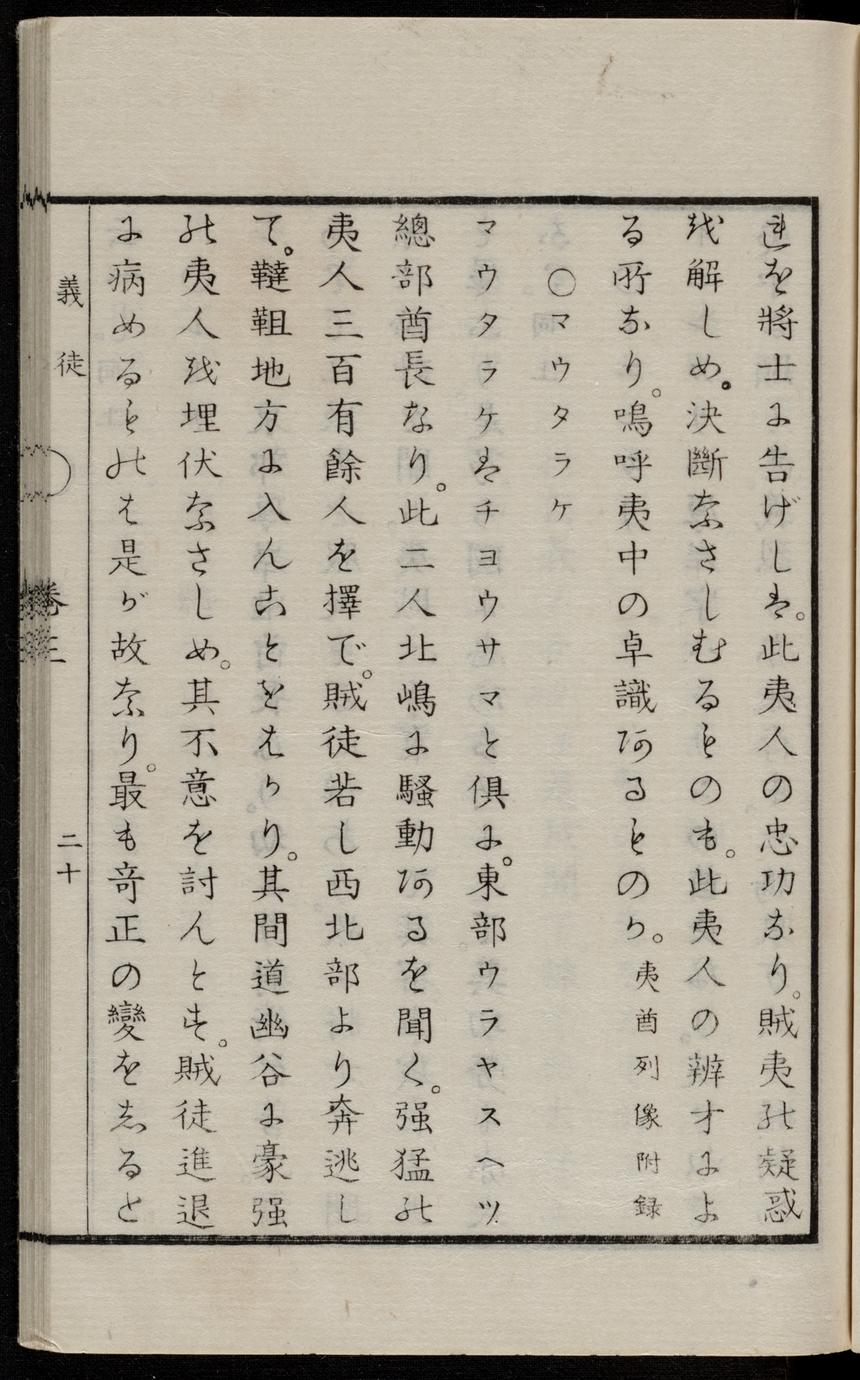 連を將士に告げしは。此夷人の忠功なり。賊夷の疑惑
を解しめ。決斷なさしむるものも。此夷人の辨才によ
る所なり。嗚呼夷中の卓識あるものか。夷酋列像附録
○マウタラケ
マウタラケはチヨウサマと俱に。東部ウラヤスヘツ
總部酋長なり。此二人北嶋に騷動あるを聞く。强猛の
夷人三百有餘人を擇で。賊徒若し西北部より奔逃し
て。韃靼地方に入んことをはかり。其間道幽谷に豪强
の夷人を埋伏なさしめ。其不意を討んとす。賊徒進退
に病めるものは是が故なり。最も竒正の變をしると
義徒
卷三
二十